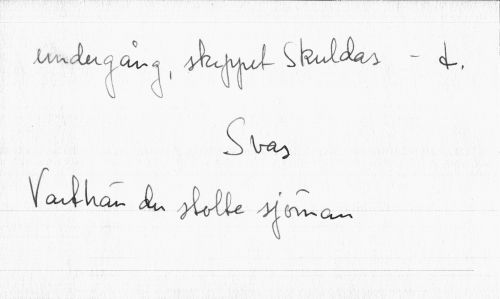 undergång, skeppet Skuldas - d.
Svas
Varthän du stolte sjöman